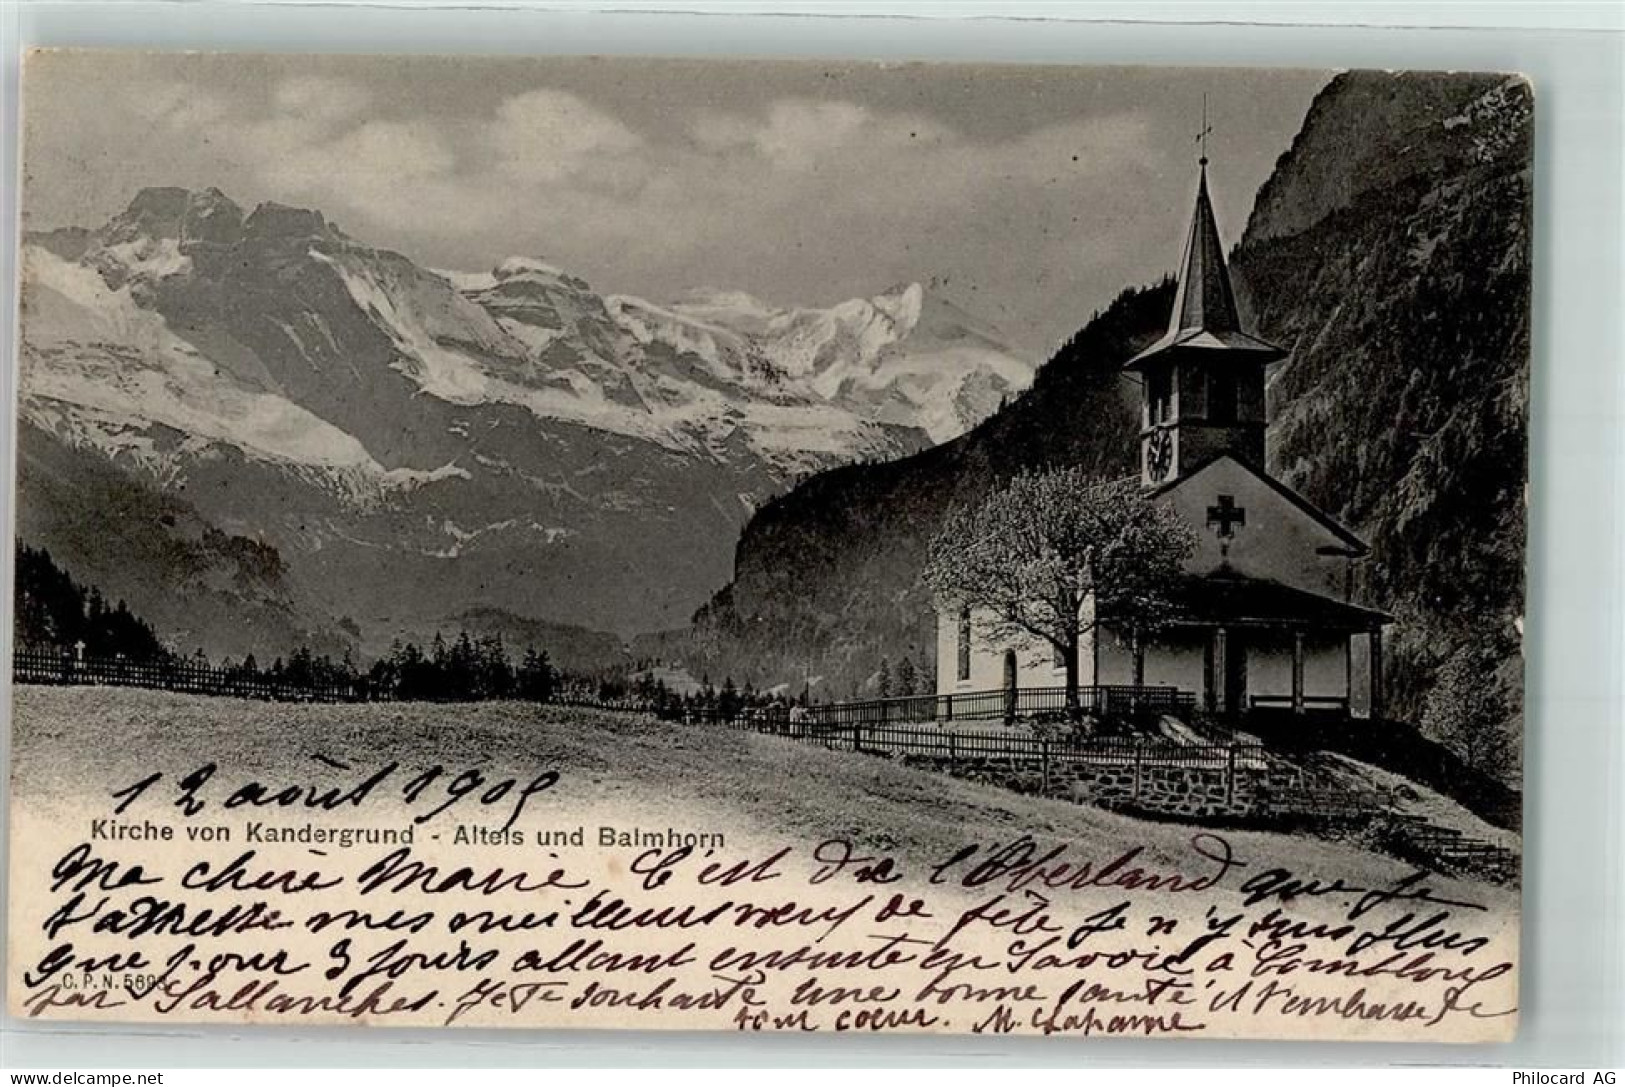 12 août 1905
Kirche von Kandergrund - Altels und Balmhorn
Ma chère Marie, C'est de l'Oberland que Je
t'adresse mes meilleurs vœux de fête Je n'y suis plus
que pour 3 jours allant ensuite en Savoie à Combloux
C. P. N. 5693
par Sallanches. Je Te souhaite une bonne santé et t'embrasse de
tout cœur. M.
Philocard AG